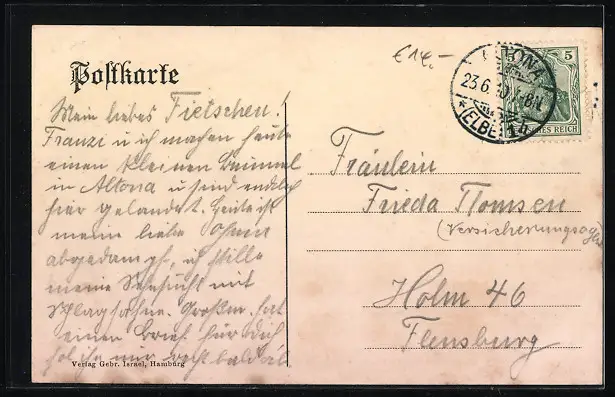 Postkarte
€ 14,-
ALTONA
23.6.10.
(ELBE)
5
DEUTSCHES REICH
Mein liebes Fietschen!
Franzi u ich machen heute
einen kleinen Bummel
in Altona u sind endlich
hier gelandet. Heute ist
meine liebe
abgedampft, ich stille
meine Sehnsucht mit
Schlagsahne. Großm. hat
einen Brief für Dich
hol ihn nur recht bald ab
Fräulein
Frieda Thomsen
(Versicherungsagen
Holm 46
Flensburg
Verlag Gebr. Israel, Hamburg